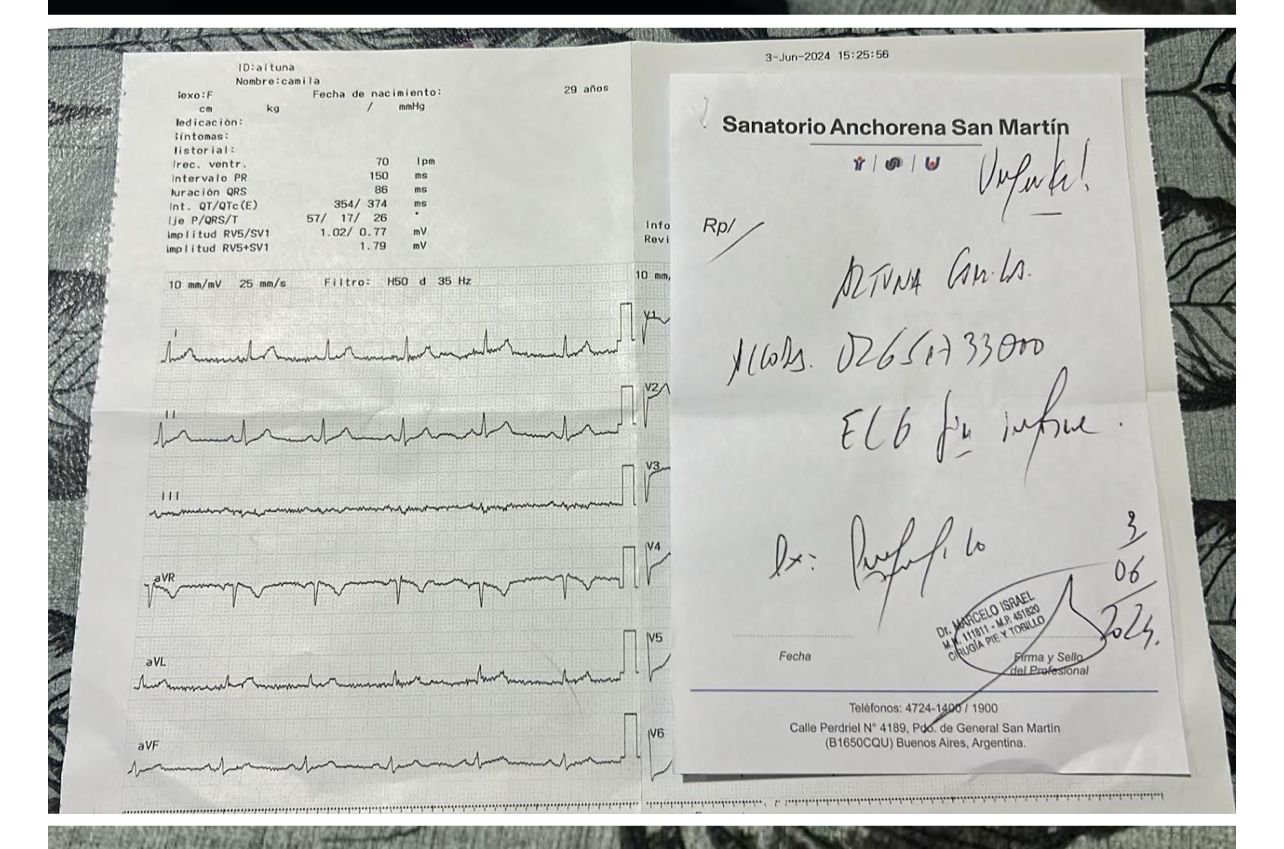 ID:altuna
Nombre:camila
exo:F Fecha de nacimiento: 29 años
cm kg / mmHg
edicación:
íntomas:
istorial:
rec. ventr. 70 lpm
ntervalo PR 150 ms
uración QRS 86 ms
nt. QT/QTc(E) 354/ 374 ms
je P/QRS/T 57/ 17/ 26 °
mplitud RV5/SV1 1.02/ 0.77 mV
mplitud RV5+SV1 1.79 mV
10 mm/mV 25 mm/s Filtro: H50 d 35 Hz
I
II
III
aVR
aVL
aVF
3-Jun-2024 15:25:56
Info
Revi
10 mm,
V1
V2
V3
V4
V5
V6
Sanatorio Anchorena San Martín
Urgente!
Rp/
ALTUNA Camila.
ECG sin informe.
Dx: Prequirúrgico
3
06
2024.
Dr. MARCELO ISRAEL
M.N. 111811 - M.P. 451820
CIRUGÍA PIE Y TOBILLO
Fecha
Firma y Sello
del Profesional
Teléfonos: 4724-1400 / 1900
Calle Perdriel N° 4189, Pdo. de General San Martín
(B1650CQU) Buenos Aires, Argentina.